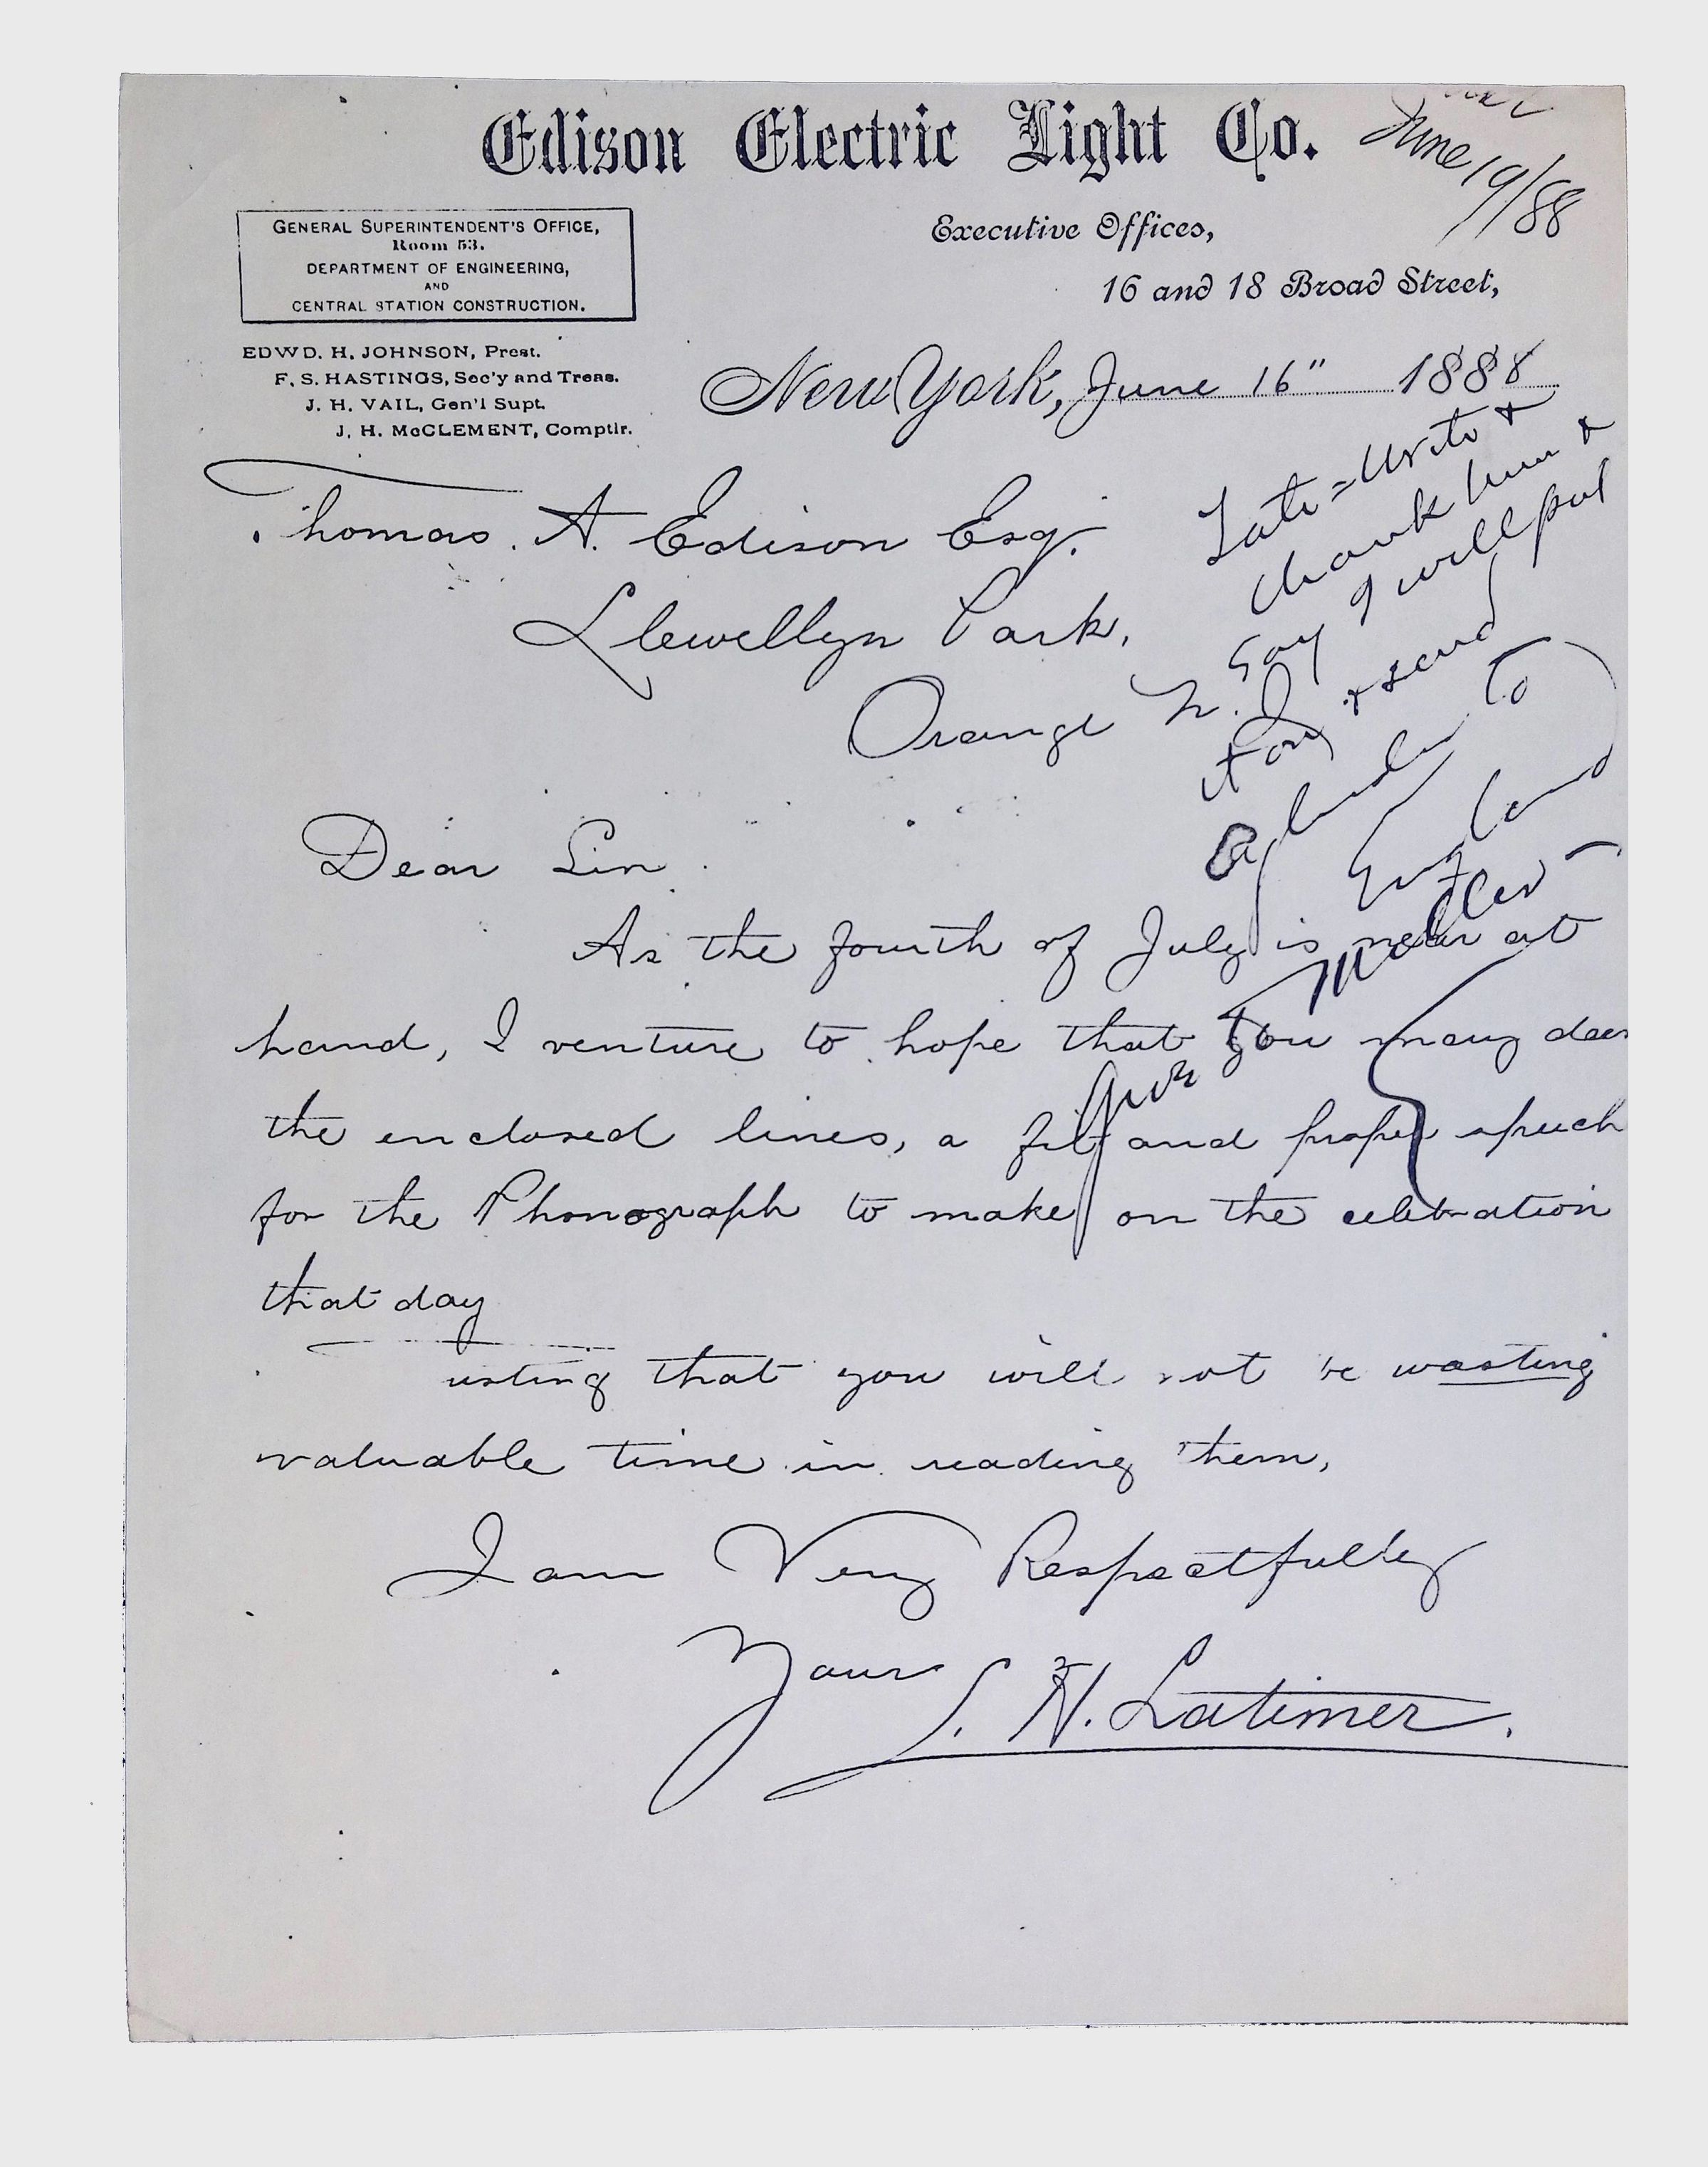 Edison Electric Light Co.
June 19/88
GENERAL SUPERINTENDENT'S OFFICE,
Room 53.
DEPARTMENT OF ENGINEERING,
AND
CENTRAL STATION CONSTRUCTION.
Executive Offices,
16 and 18 Broad Street,
EDWD. H. JOHNSON, Prest.
F. S. HASTINGS, Sec'y and Treas.
J. H. VAIL, Gen'l Supt.
J. H. McCLEMENT, Comptlr.
New York, June 16" 1888
Thomas. A. Edison Esq.
Llewellyn Park,
Orange N. J.
Tate = Write &
thank him &
say I will put
it on & send
cylinder to
England
Dear Sir
As the fourth of July is near at
hand, I venture to hope that you may deem
the enclosed lines, a fit and proper speech
for the Phonograph to make on the celebration
that day
usting that you will not be wasting
valuable time in reading them,
I am Very Respectfully
Yours
L. H. Latimer.